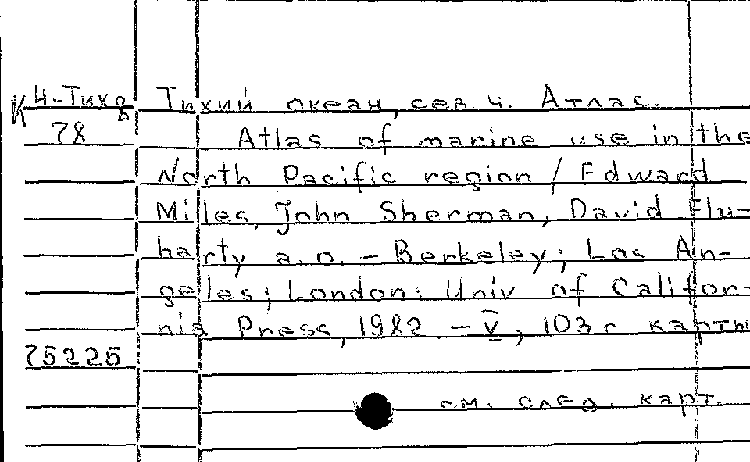 К Ч-Тихв Тихий океан, сев. ч. Атлас.
78 Atlas of marine use in the
North Pacific region / Edward
Miles, John Sherman, David Flu-
harty a. o. - Berkeley; Los An-
geles; London: Univ. of Califor-
nia Press, 1982. - V, 103 с карты
75225
см. след. карт.